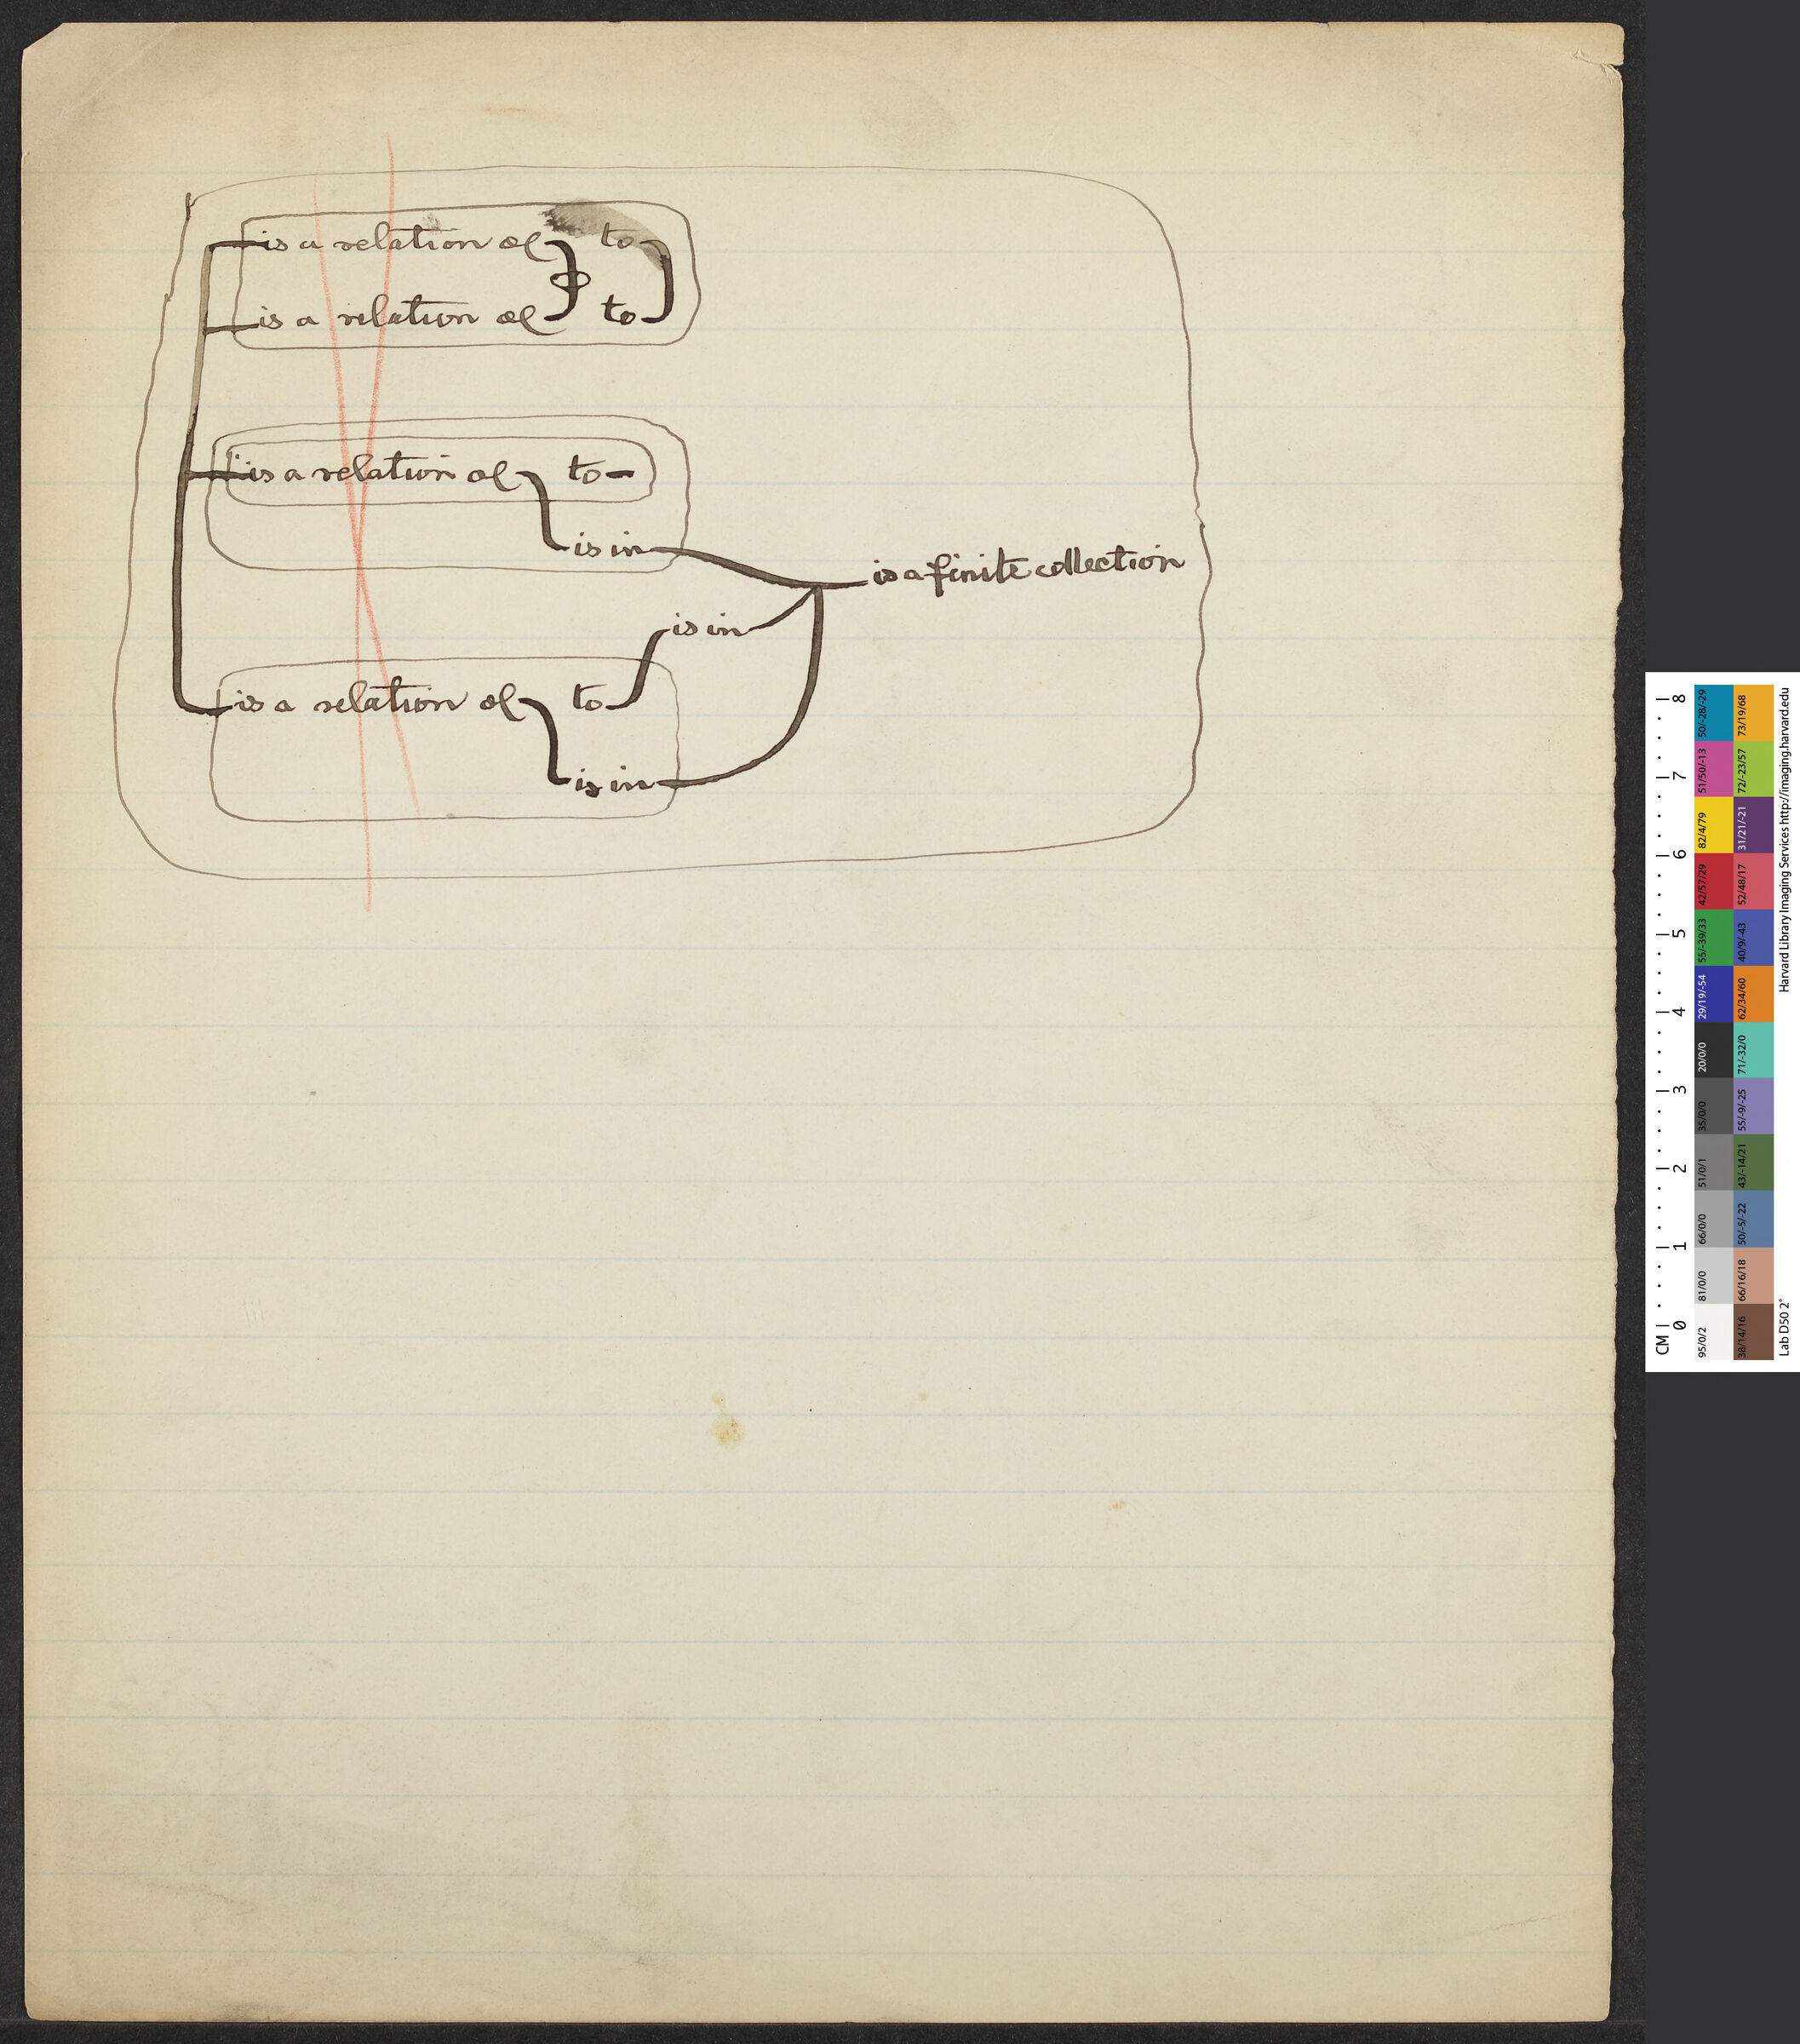 is a relation of to
is a relation of to
is a relation of to
is in
is a finite collection
is in
is a relation of to
is in
CM 0 1 2 3 4 5 6 7 8
95/0/2 81/0/0 66/0/0 51/0/1 35/0/0 20/0/0 29/19/-54 55/-39/33 42/57/29 82/4/79 51/50/-13 50/-28/-29
38/14/16 66/16/18 50/-5/-22 43/-14/21 55/-9/-25 71/-32/0 62/34/60 40/9/-43 52/48/17 31/21/-21 72/-23/57 73/19/68
Lab D50 2° Harvard Library Imaging Services http://imaging.harvard.edu